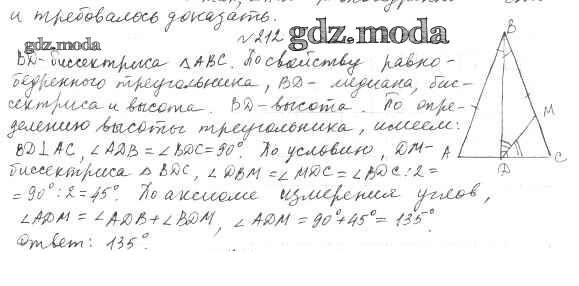 и требовалось доказать.
№212
gdz.moda
gdz.moda
BD-биссектриса △ABC. По свойству равно-
бедренного треугольника, BD- медиана, бис-
сектриса и высота. BD-высота. По опре-
делению высоты треугольника, имеем:
BD⊥AC, ∠ADB=∠BDC=90°. По условию, DM-
биссектриса △BDC, ∠DBM=∠MDC=∠BDC:2=
=90°:2=45°. По аксиоме измерения углов,
∠ADM=∠ADB+∠BDM, ∠ADM=90°+45°=135°.
Ответ: 135°.
B
M
A
D
C